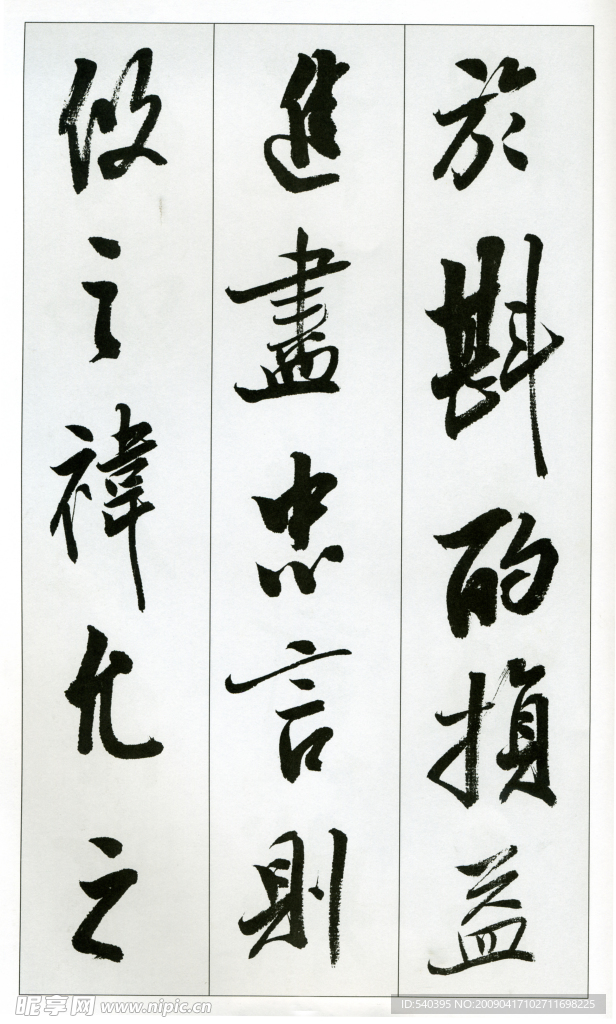 於斟酌損益
進盡忠言則
攸之禕允之
昵享网 www.nipic.cn
ID:540395 NO:20090417102711698225